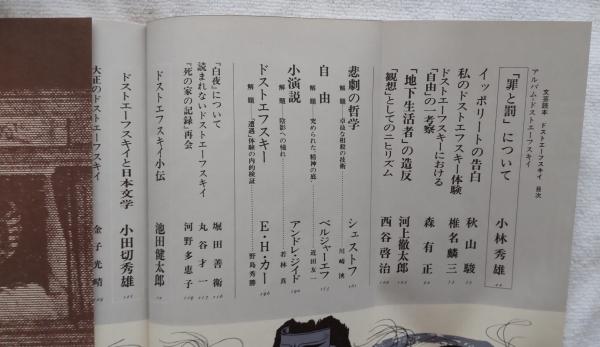 文芸読本 ドストエーフスキイ 目次
アルバム・ドストエーフスキイ
「罪と罰」について 小林秀雄
イッポリートの告白 秋山駿
私のドストエーフスキイ体験 椎名麟三
ドストエーフスキーにおける「自由」の一考察 森有正
「地下生活者」の造反 河上徹太郎
「観想」としてのニヒリズム 西谷啓治
悲劇の哲学 シェストフ
解題 卓抜な相殺の技術 川崎浹
自由 ベルジャーエフ
解題 究められた、精神の底 近田友一
小演説 アンドレ・ジイド
解題 陰影への憧れ 若林真
ドストエフスキー E・H・カー
解題 「遭遇」体験の内的検証 野島秀勝
「白夜」について 堀田善衛
読まれないドストエーフスキイ 丸谷才一
『死の家の記録』再会 河野多恵子
ドストエーフスキイ小伝 池田健太郎
ドストエーフスキイと日本文学 小田切秀雄
大正のドストエーフスキイ 金子光晴